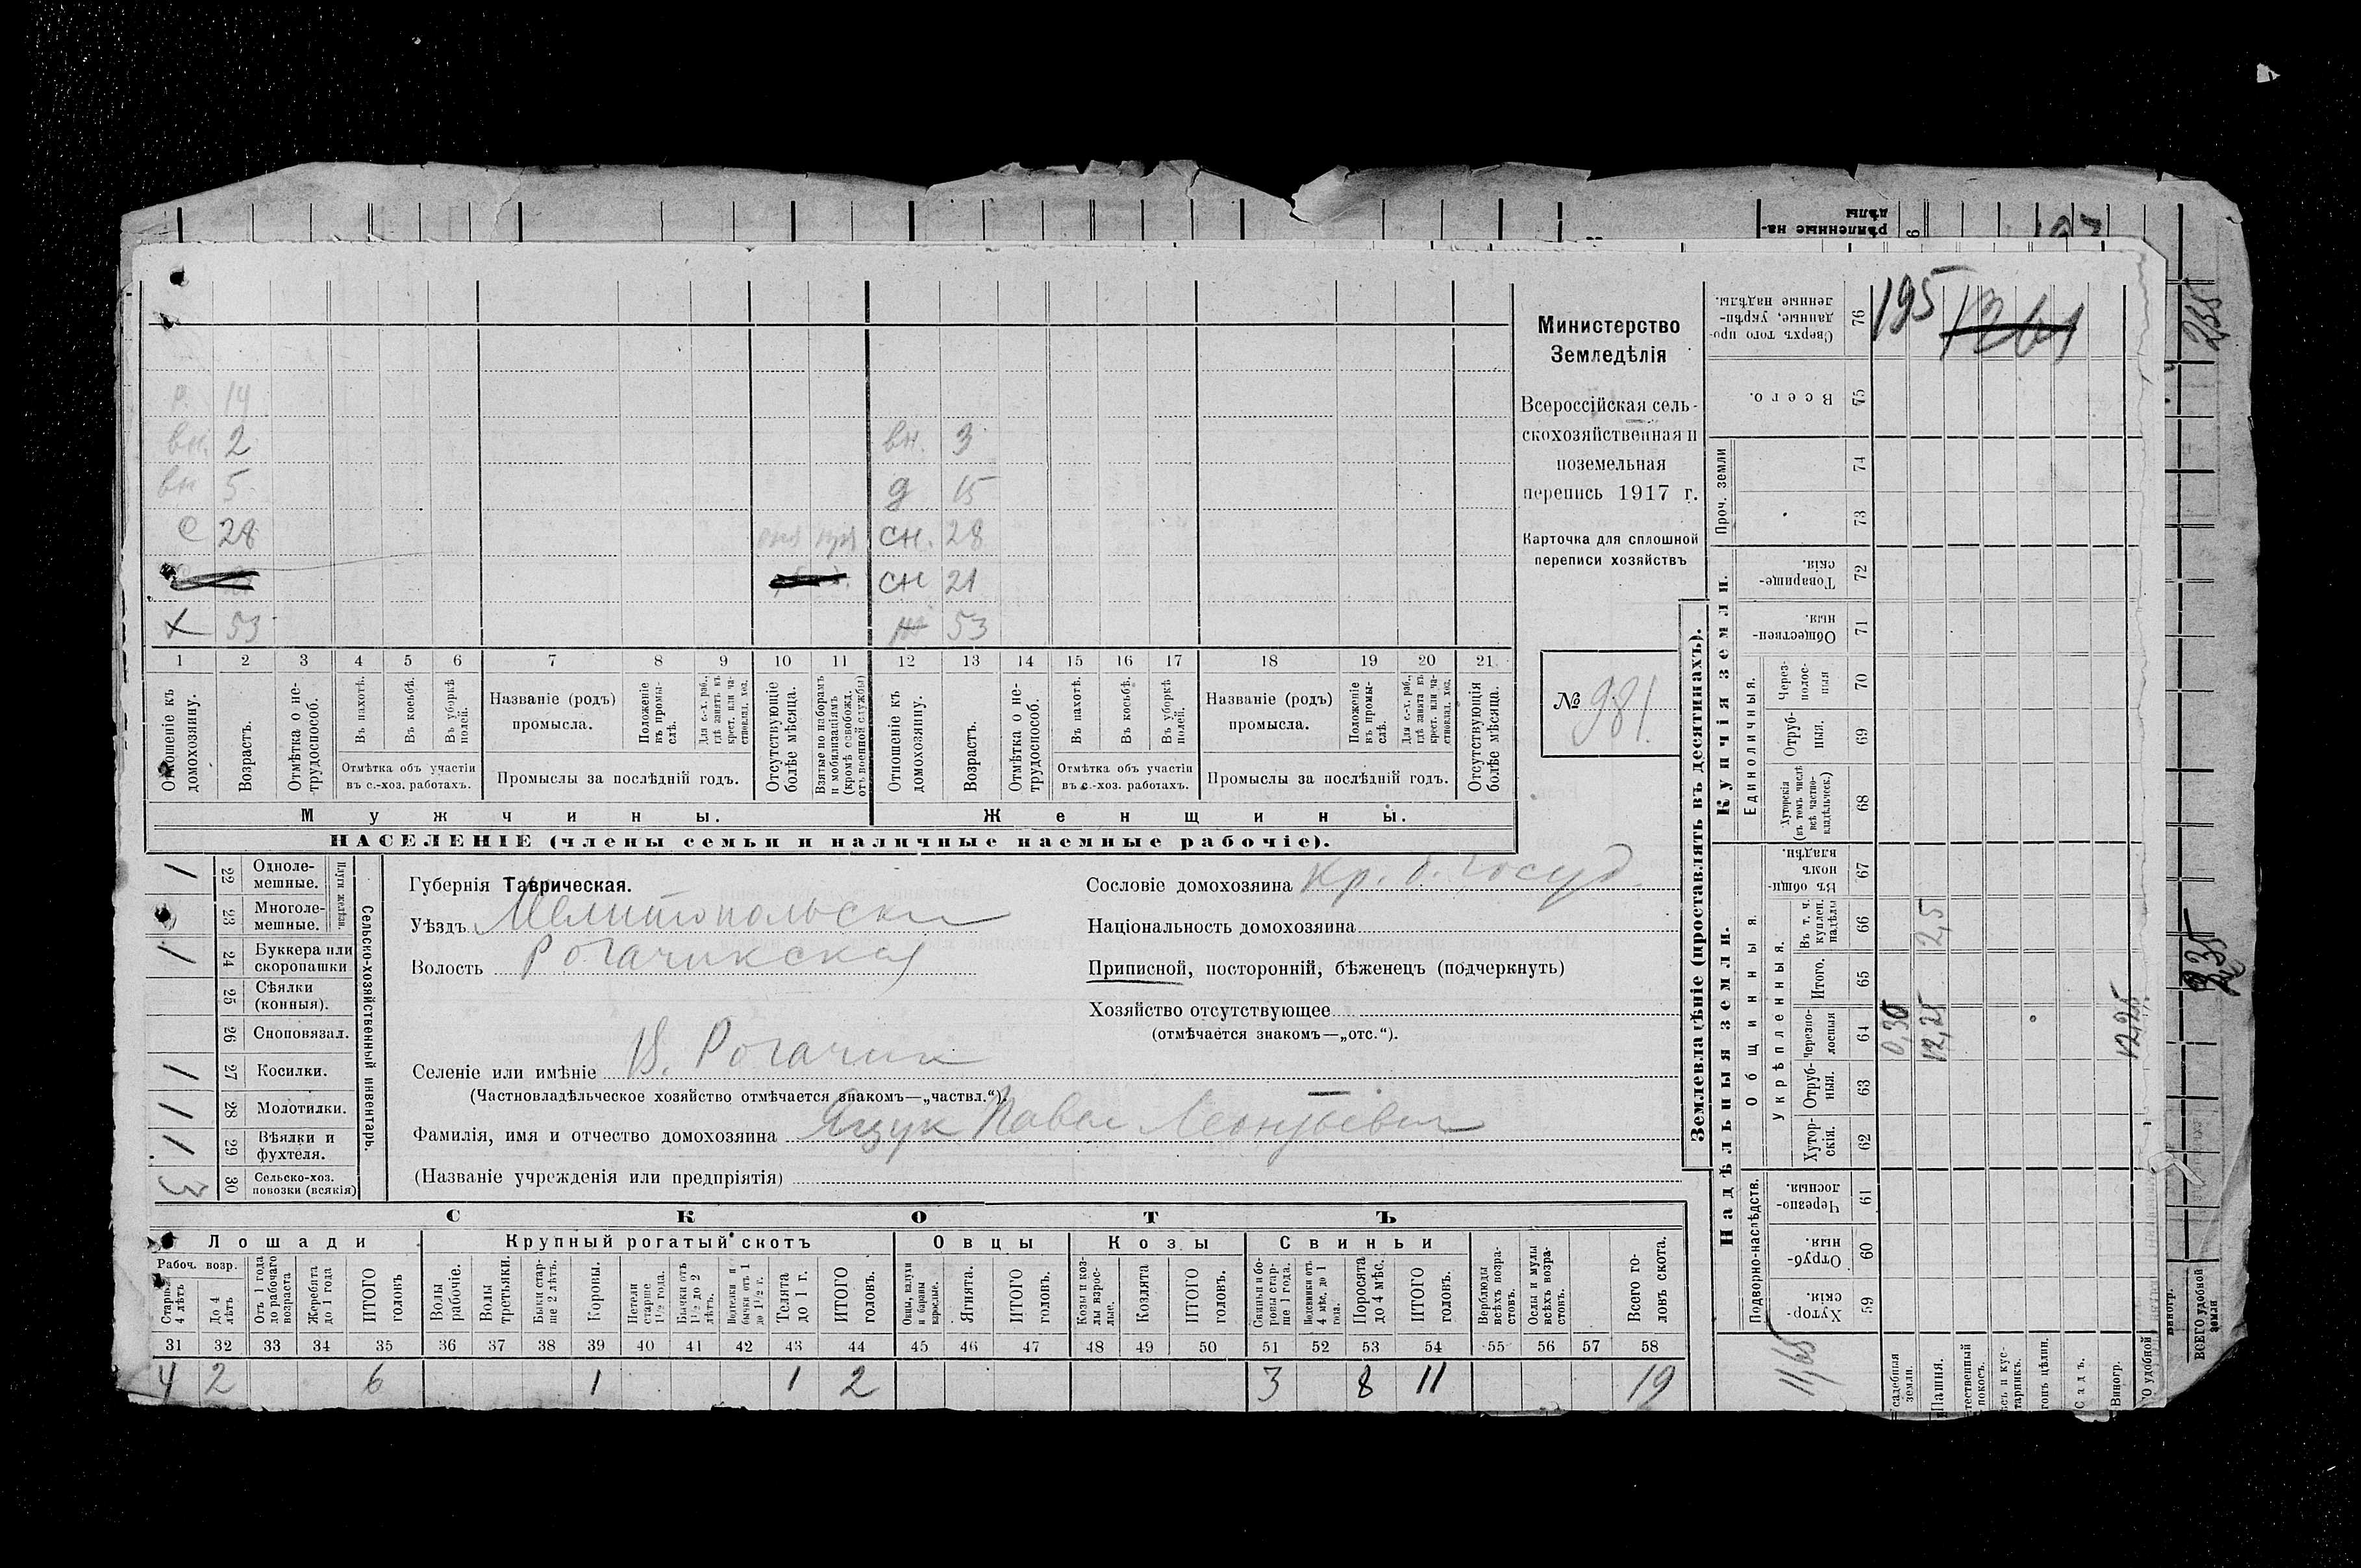 Министерство
Земледѣлія
Всероссійская сель-
скохозяйственная и
поземельная
перепись 1917 г.
Карточка для сплошной
переписи хозяйствъ
№ 981.
р. 14
вн. 2 вн. 3
вн 5 д 15
с 28 сн. 28
сн 21
х 53 ж 53
1 2 3 4 5 6 7 8 9 10 11 12 13 14 15 16 17 18 19 20 21
Отношеніе къ домохозяину.
Возрастъ.
Отмѣтка о не-трудоспособ.
Въ пахотѣ.
Въ косьбѣ.
Въ уборкѣ полей.
Отмѣтка объ участіи
въ с.-хоз. работахъ.
Названіе (родъ)
промысла.
Положеніе въ промы-слѣ.
Для с.-х. раб., гдѣ занятъ въ крест. или ча-стновлад. хоз.
Промыслы за послѣдній годъ.
Отсутствующіе болѣе мѣсяца.
Взятые по наборамъ и мобилизаціямъ (кромѣ освобожд. отъ военной службы)
Отношеніе къ домохозяину.
Возрастъ.
Отмѣтка о не-трудоспособ.
Въ пахотѣ.
Въ косьбѣ.
Въ уборкѣ полей.
Отмѣтка объ участіи
въ с.-хоз. работахъ.
Названіе (родъ)
промысла.
Положеніе въ промы-слѣ.
Для с.-х. раб., гдѣ занята въ крест. или ча-стновлад. хоз.
Промыслы за послѣдній годъ.
Отсутствующія болѣе мѣсяца.
Мужчины. Женщины.
НАСЕЛЕНІЕ (члены семьи и наличные наемные рабочіе).
Сельско-хозяйственный инвентарь.
Плуги желѣзн.
1 22 Одноле-мешные.
23 Многоле-мешные.
1 24 Буккера или скоропашки
25 Сѣялки (конныя).
26 Сноповязал.
1 27 Косилки.
1 28 Молотилки.
1 29 Вѣялки и фухтеля.
3 30 Сельско-хоз. повозки (всякія)
Губернія Таврическая.
Уѣздъ Мелитопольски
Волость Рогачикская
Сословіе домохозяина Кр. б. госуд.
Національность домохозяина
Приписной, посторонній, бѣженецъ (подчеркнуть)
Хозяйство отсутствующее
(отмѣчается знакомъ—„отс.“).
Селеніе или имѣніе В. Рогачик
(Частновладѣльческое хозяйство отмѣчается знакомъ—„частвл.“).
Фамилія, имя и отчество домохозяина Ящук Павел Леонтьевич
(Названіе учрежденія или предпріятія)
СКОТЪ
Лошади Крупный рогатый скотъ Овцы Козы Свиньи
Рабоч. возр.
Старше 4 лѣтъ
До 4 лѣтъ
Отъ 1 года до рабочаго возраста
Жеребята до 1 года
ИТОГО головъ
Волы рабочіе.
Волы третьяки.
Быки стар-ше 2 лѣтъ.
Коровы.
Нетели старше 1½ года.
Бычки отъ 1½ до 2 лѣтъ.
Телята до 1 г.
ИТОГО головъ.
Овцы, валухи и бараны взрослые.
Ягнята.
ИТОГО головъ.
Козы и коз-лы взрос-лые.
Козлята
ИТОГО головъ.
Свиньи и бо-ровы стар-ше 1 года.
Поросята до 4 мѣс.
ИТОГО головъ.
Верблюды всѣхъ возра-стовъ.
Ослы и мулы всѣхъ возра-стовъ.
Всего го-ловъ скота.
31 32 33 34 35 36 37 38 39 40 41 42 43 44 45 46 47 48 49 50 51 52 53 54 55 56 57 58
4 2 6 1 1 2 3 8 11 19
Землевладѣніе (проставлять въ десятинахъ).
Надѣльныя земли. Купчія земли.
Подворно-наслѣдств.
Общинныя.
Укрѣпленныя.
Единоличныя.
Проч. земли
Хутор-скія. 59
Отруб-ныя. 60
Черезпо-лосныя 61
Хутор-скія. 62
Отруб-ныя. 63
Черезпо-лосныя 64
Итого. 65
Въ т. ч. куплен. надѣлы 66
Въ общи-номъ владѣн. 67
Хуторскія (въ томъ числѣ всѣ частно-владѣльческ.) 68
Отруб-ныя. 69
Через-полос-ныя 70
Обществен-ныя. 71
Товарище-скія. 72
73
74
Всего. 75
Сверхъ того про-данные, укрѣп-ленные надѣлы. 76
195
0,36
12,25
2,5
12,25
садебная земли.
Пашня.
Садъ.
Виногр.
О удобной
Виногр.
ВСЕГО удобной земли
235